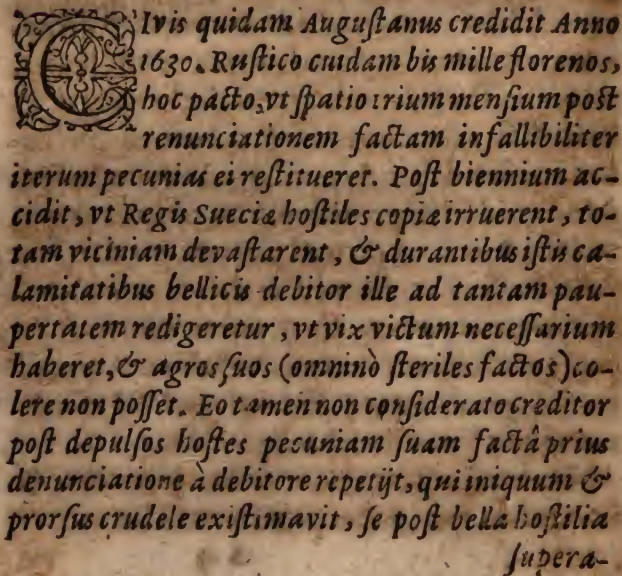 CIvis quidam Auguſtanus credidit Anno
1630. Ruſtico cuidam bis mille florenos,
hoc pacto, vt ſpatio trium menſium poſt
renunciationem factam infallibiliter
iterum pecunias ei reſtitueret. Poſt biennium ac-
cidit, vt Regis Sueciæ hoſtiles copiæ irruerent, to-
tam viciniam devaſtarent, & durantibus iſtis ca-
lamitatibus bellicis debitor ille ad tantam pau-
pertatem redigeretur, vt vix victum neceſſarium
haberet, & agros ſuos (omninò ſteriles factos) co-
lere non poſſet. Eo tamen non conſiderato creditor
poſt depulſos hoſtes pecuniam ſuam factâ prius
denunciatione à debitore repetijt, qui iniquum &
prorſus crudele exiſtimavit, ſe poſt bella hoſtilia
ſupera-